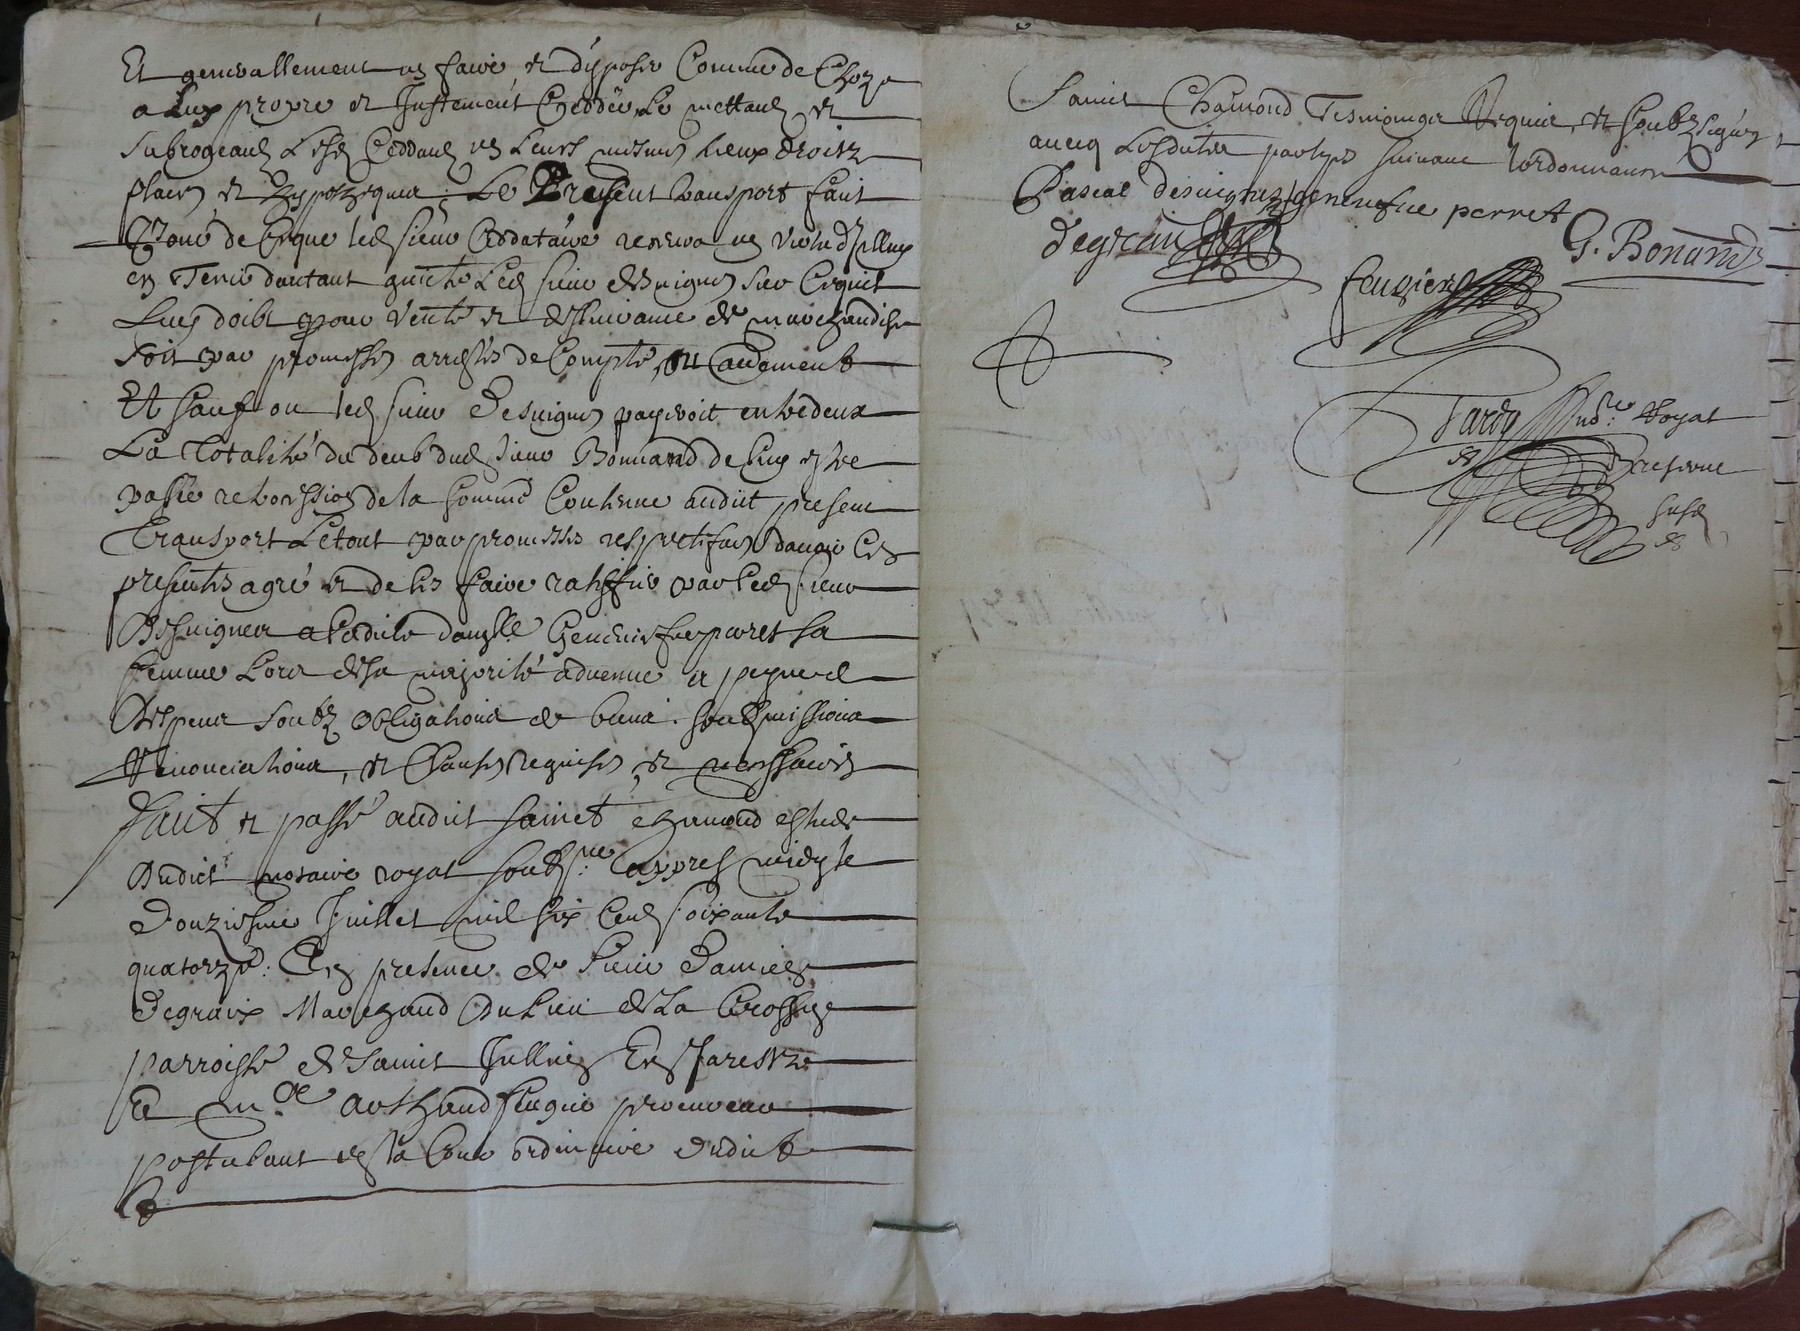 Et generallement en faire et disposer Comme de Choze
a luy propre et Justement Ceddée Le mettant et
subrogeant Lesd Ceddants en Leurs mesmes lieux droitz
places et hypotheques. Le Present transport fait
Pour de ce que led sieur Ceddataire
en Tenir dautant quitte Led sieur desvignes
Luy doibt pour vente et deslivrance de marchandise
soit par promesses arrestés de Compte, ou autrement
Et sauf ou led sieur Desvignes payeroit
La Totalité du deub dud sieur Bonnand de luy estre
passé retrocession de la somme Contenue audict present
Transport Le tout par promesses respectifves davoir Ces
presentes agré et de les faire ratiffier par led sieur
Desvignes a Ladicte damlle Geneviefve perret sa
femme Lors de sa majorité advenue a peyne de
despens soubz obligations de biens soubmissions
Renonciations, et Clauses requises, et necessaires
fait et passé audict sainct chamond estude
dudict notaire royal soubsne appres midy le
douziesme Juillet mil six Cent soixante
quatorze: En presence de sieur Damien
Degraix Marchand du lieu de La
parroisse de sainct Jullien En Jarestz
Et me Arthaud feugier procureur
postulant en la Cour ordinaire dudict
Sainct Chamond Tesmoings Requis, et soubzsignez
avecq Lesdictes partyes suivant lordonnance
Pascal desvignes genevefve perret
degraix
G. Bonand
feugier
Tardy Nore Royal